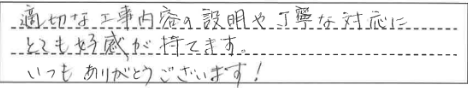 適切な工事内容の説明や丁寧な対応に
とても好感が持てます。
いつもありがとうございます!